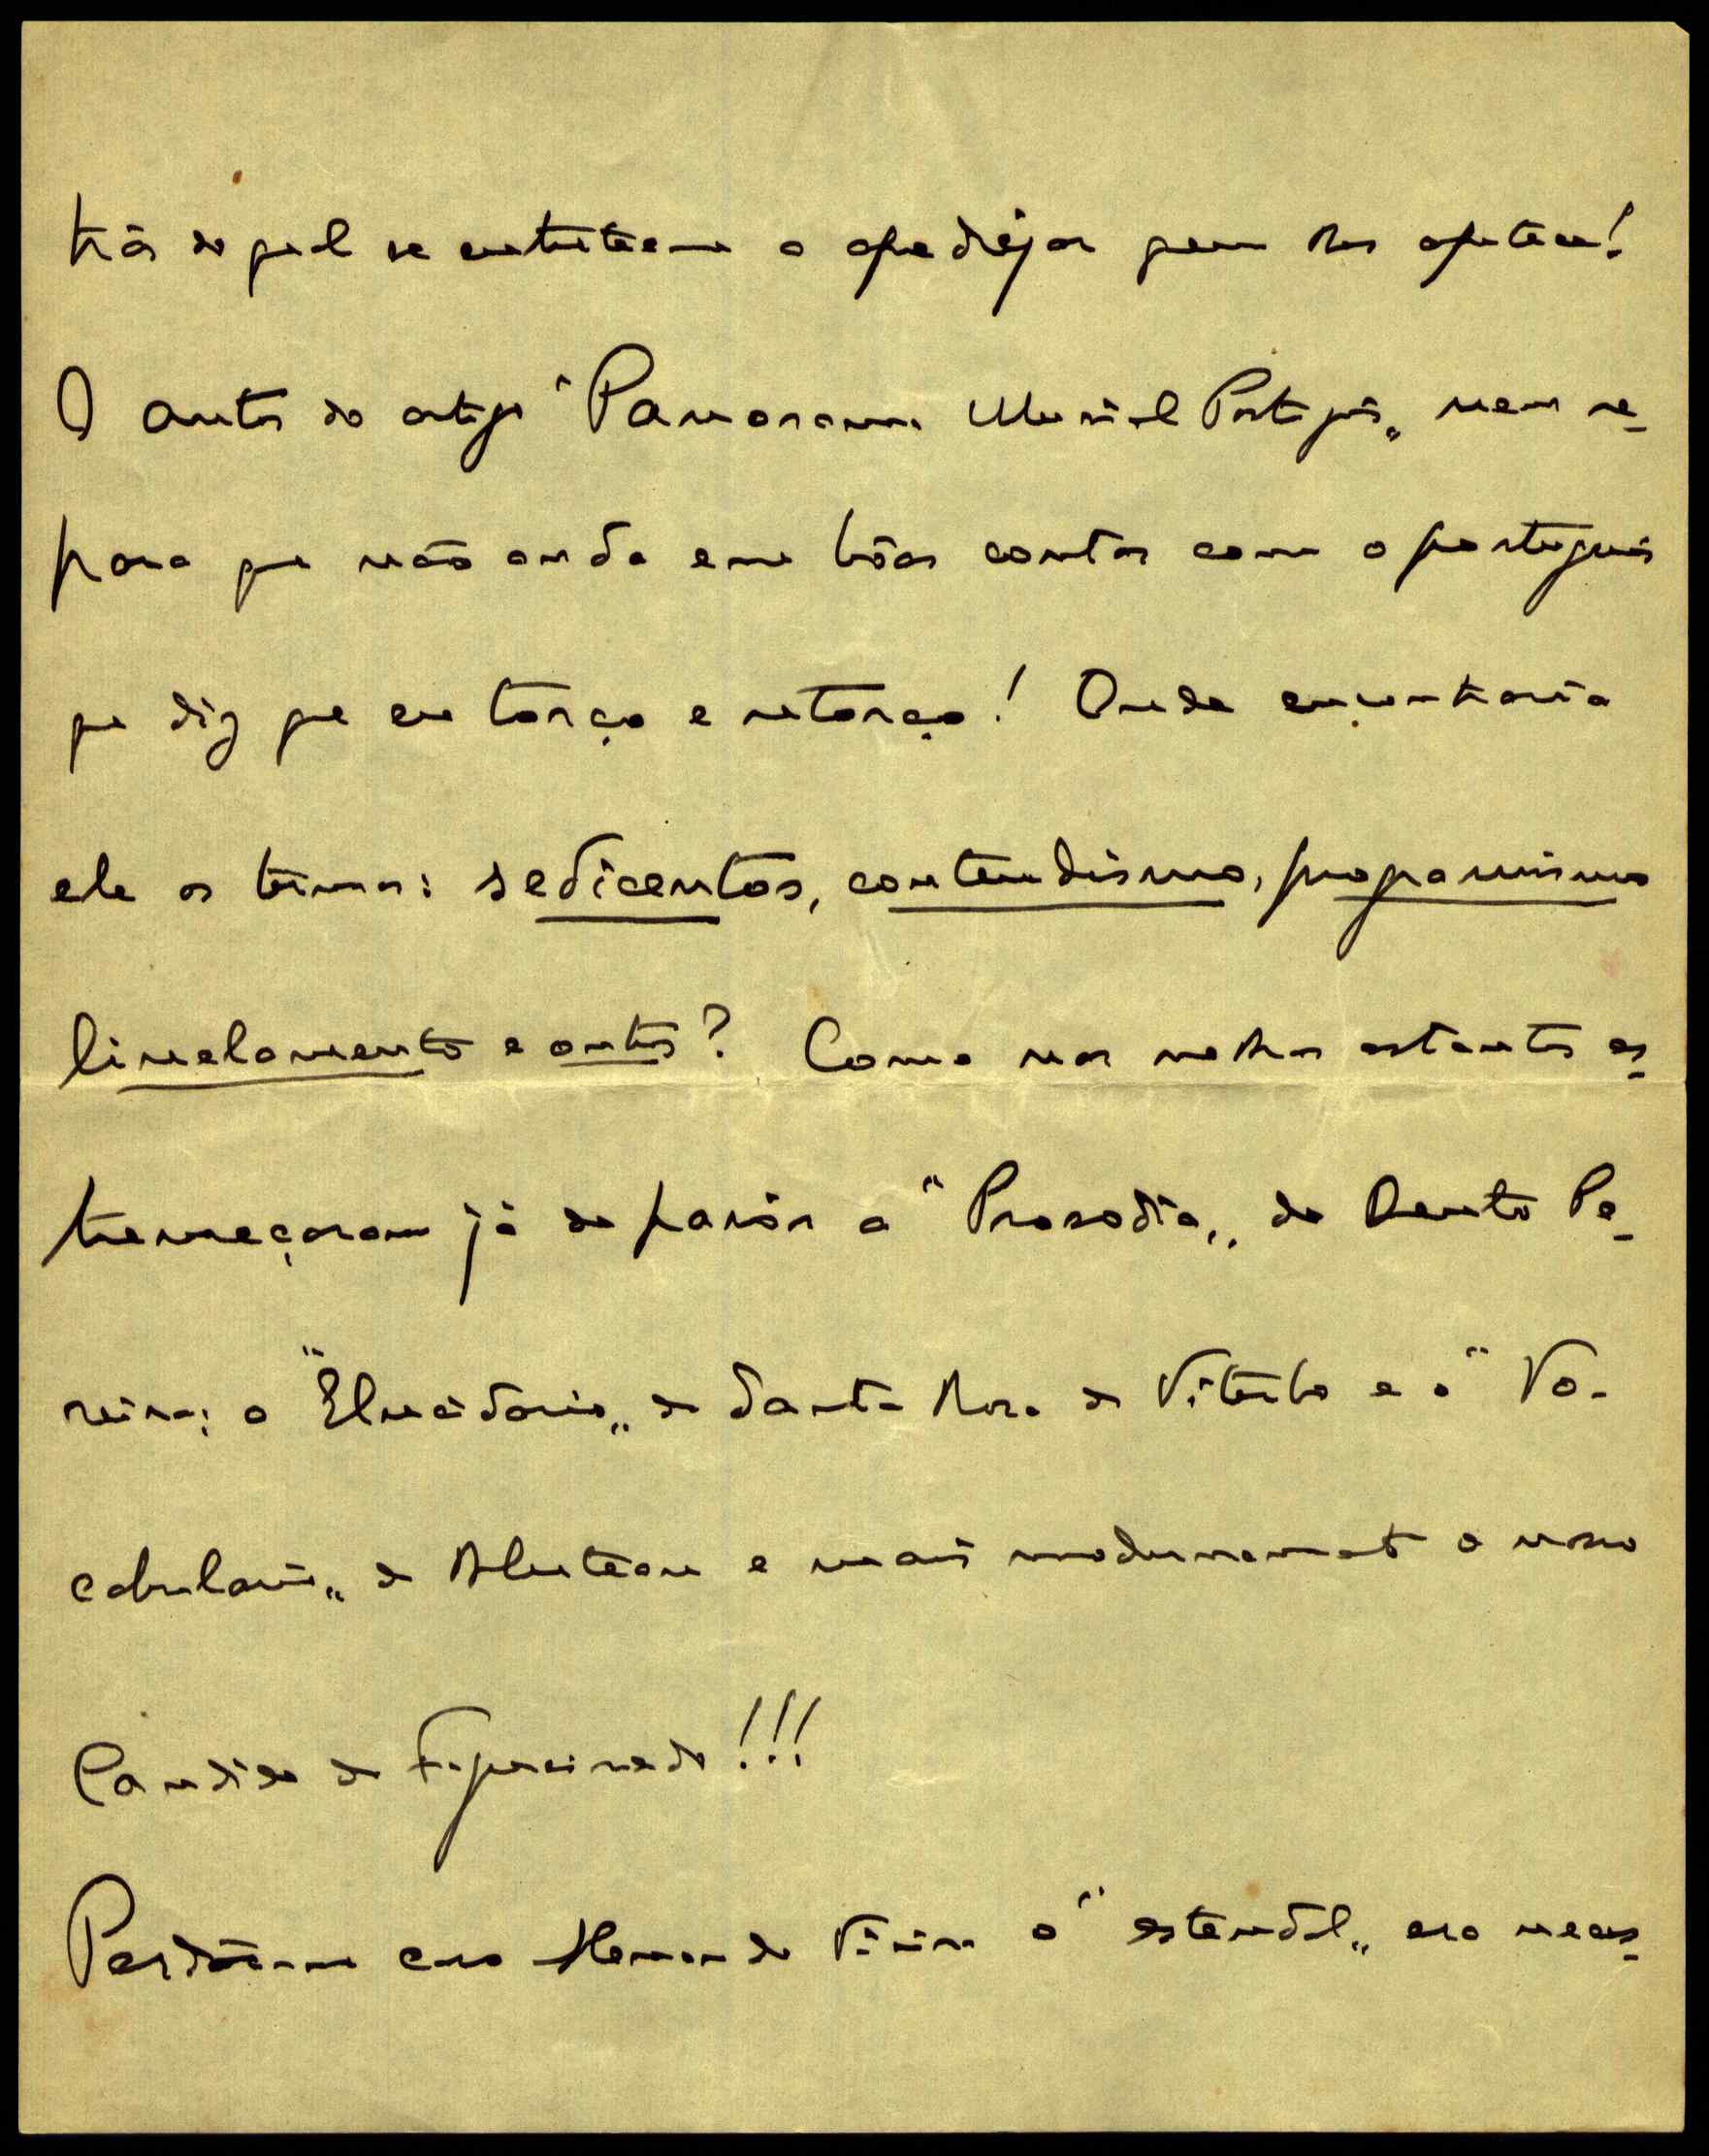 trás do qual se entreteem a apedrejar quem lhes apetece!
O autor do artigo "Panorama Musical Português" nem re-
para que não anda em bôas contas com o português
que diz que eu torço e retorço! Onde encontraria
ele os têrmos: sedicentos, contendismo, proganismo
linelamento e outros? Como nas nossas estantes es-
tremeçeram já de pavôr a "Prosodia" de Bento Pe-
reira; o "Elucidario" de Santa Rosa de Viterbo e o "Vo-
cabulario" de Bluteau e mais modernamente o nosso
Candido de Figueiredo!!!
Perdôe-me caro Hermano Vieira o "estendal" era neces-